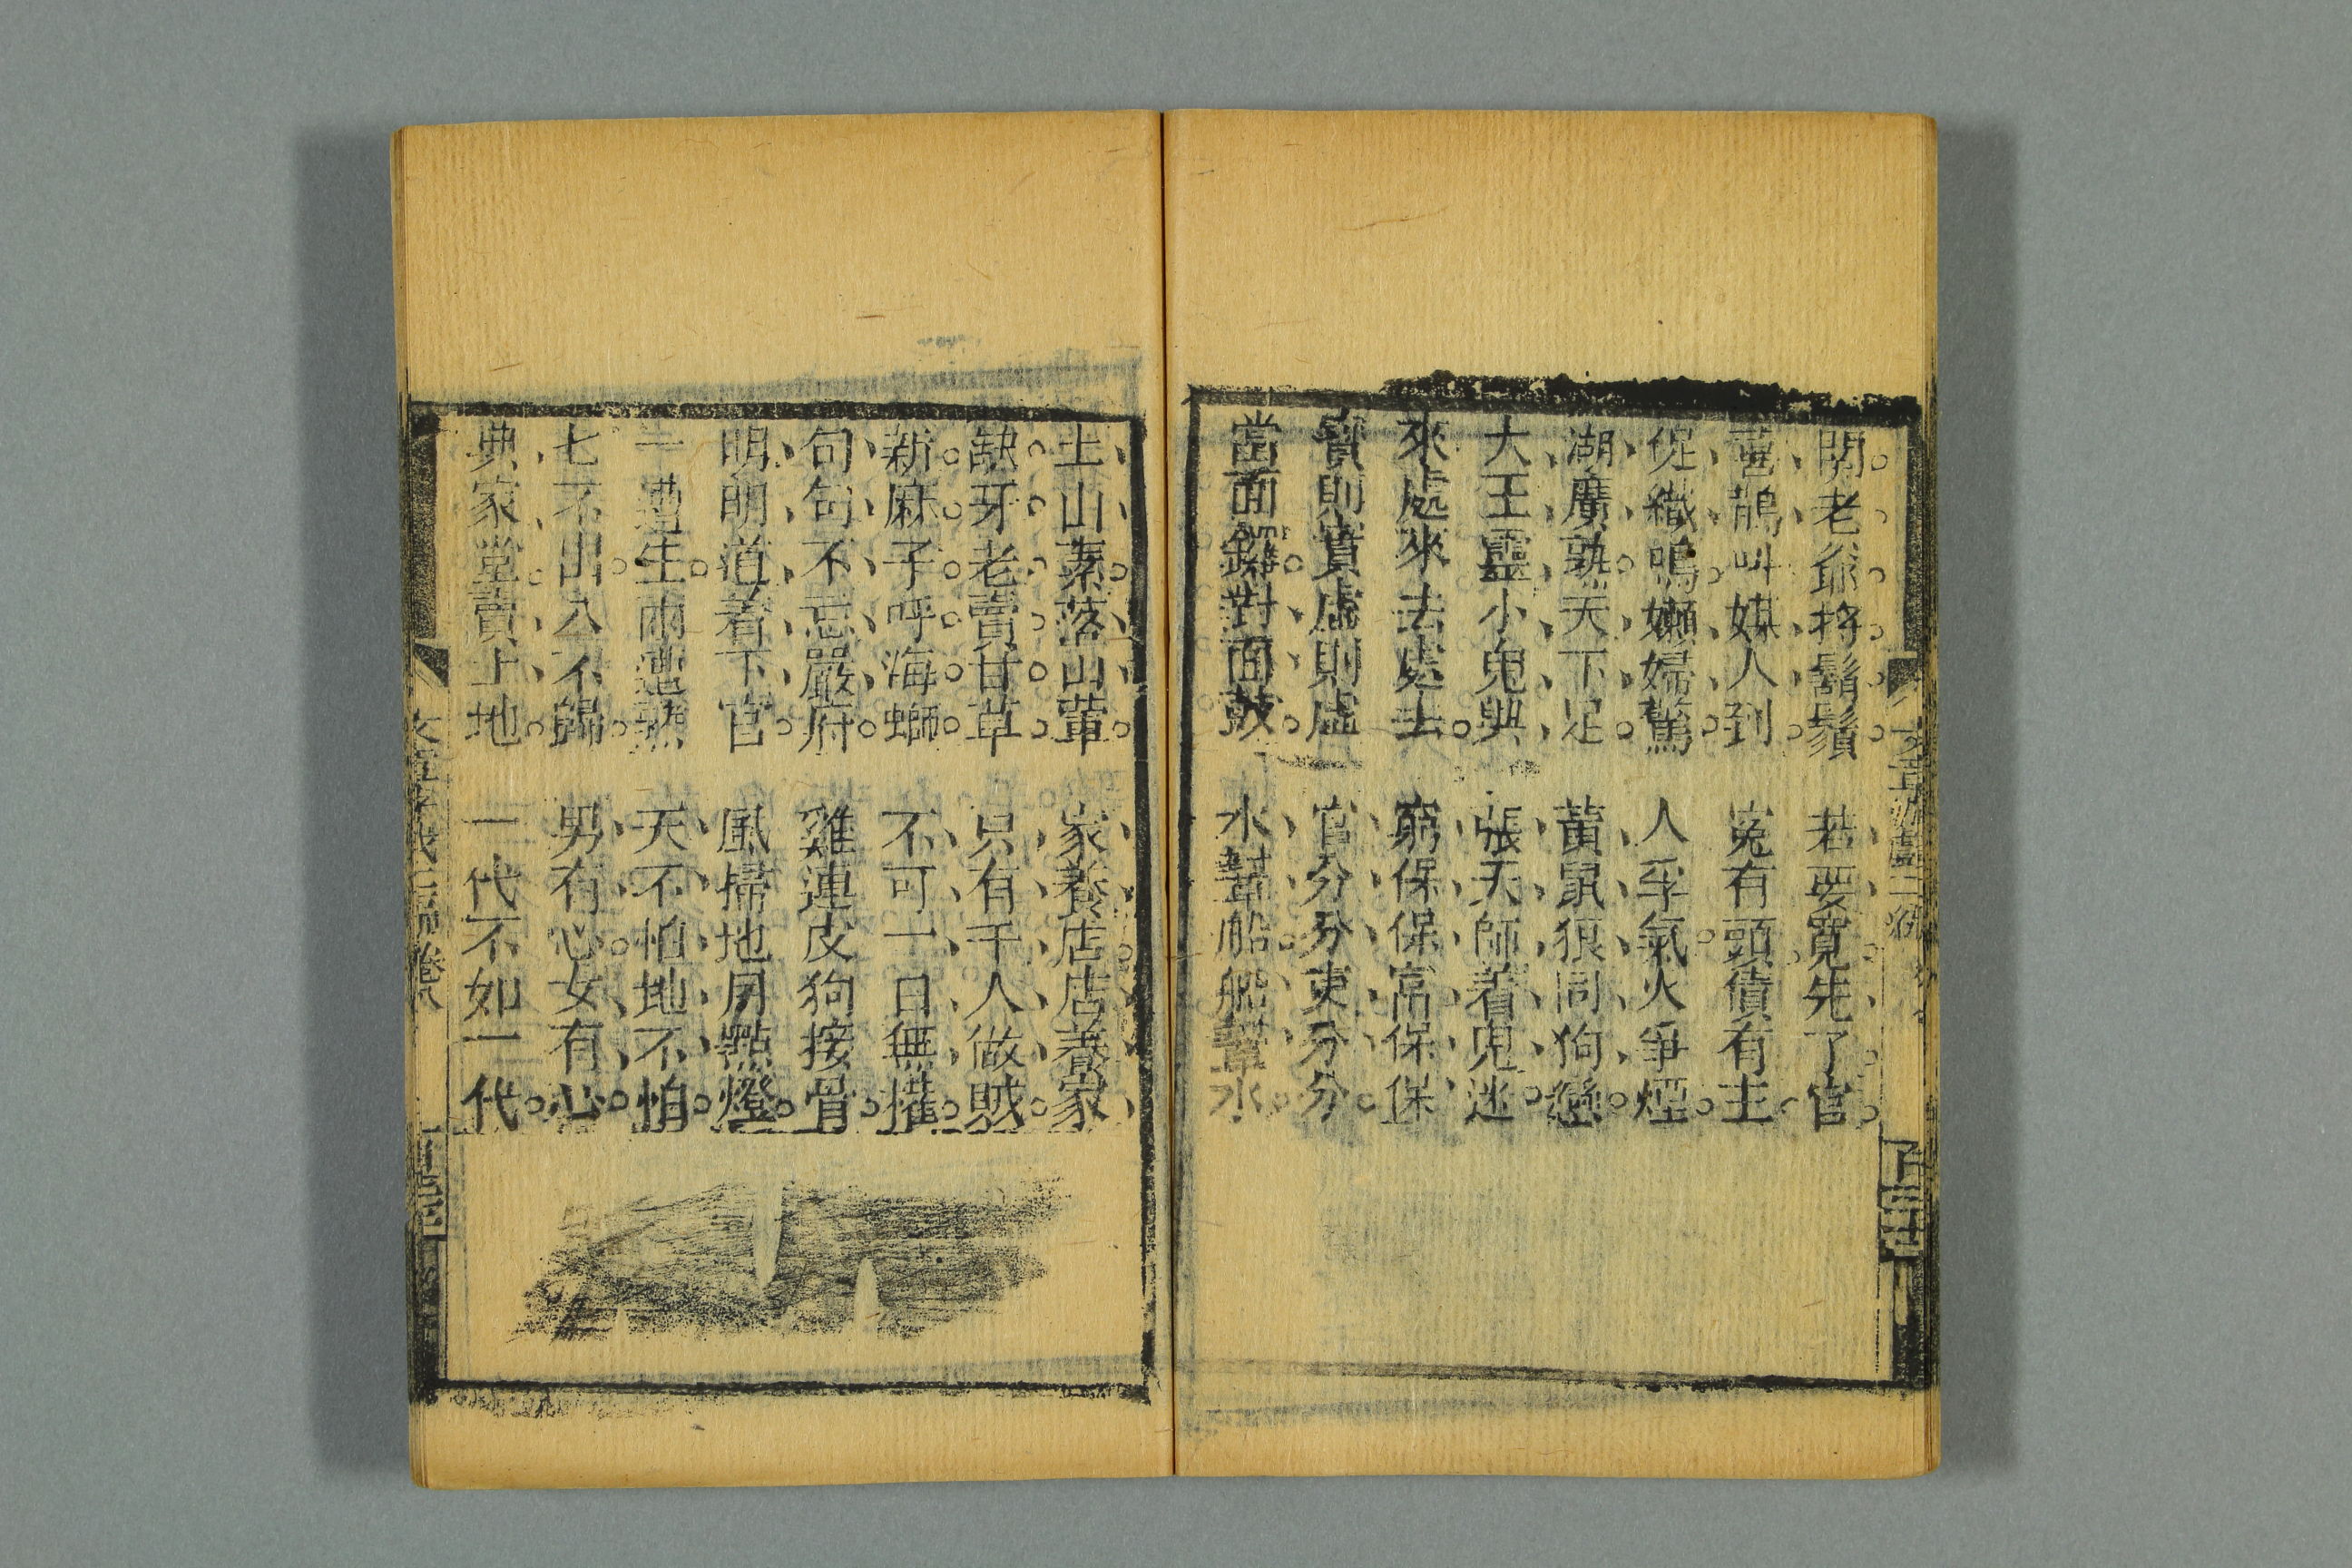 閻老爺捋鬍鬚　若要寬先了官
喜鵲叫媒人到　冤有頭債有主
促織鳴嬾婦驚　人爭氣火爭煙
湖廣孰天下足　黃鼠狼同狗戀
大王靈小鬼興　張天師着鬼迷
來處來去處去　窮保保富保保
實則實虛則虛　官分分吏分分
當面鑼對面鼓　水幫船船幫水
土山素落山葷　家養店店養家
缺牙老賣甘草　只有千人做賊
新麻子呼海螄　不可一日無攉
句句不忘嚴府　雞連皮狗接骨
明明道着下官　風掃地月點燈
一遭生兩遭熟　天不怕地不怕
七不出八不歸　男有心女有心
典家堂賣土地　一代不如一代